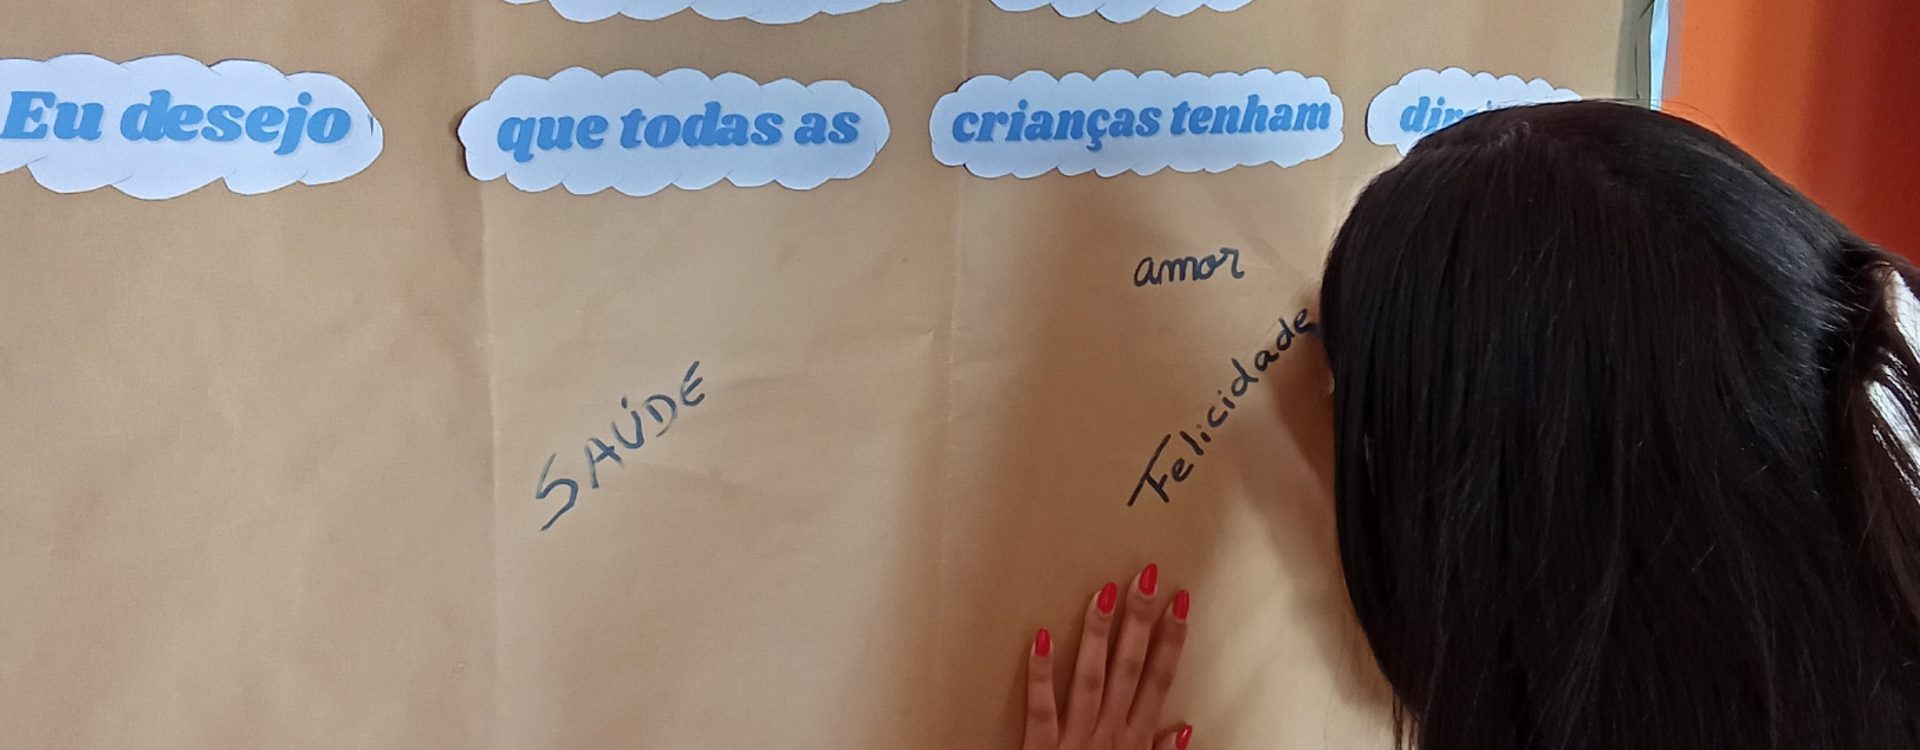 Eu desejo que todas as crianças tenham
amor
Felicidade
SAÚDE